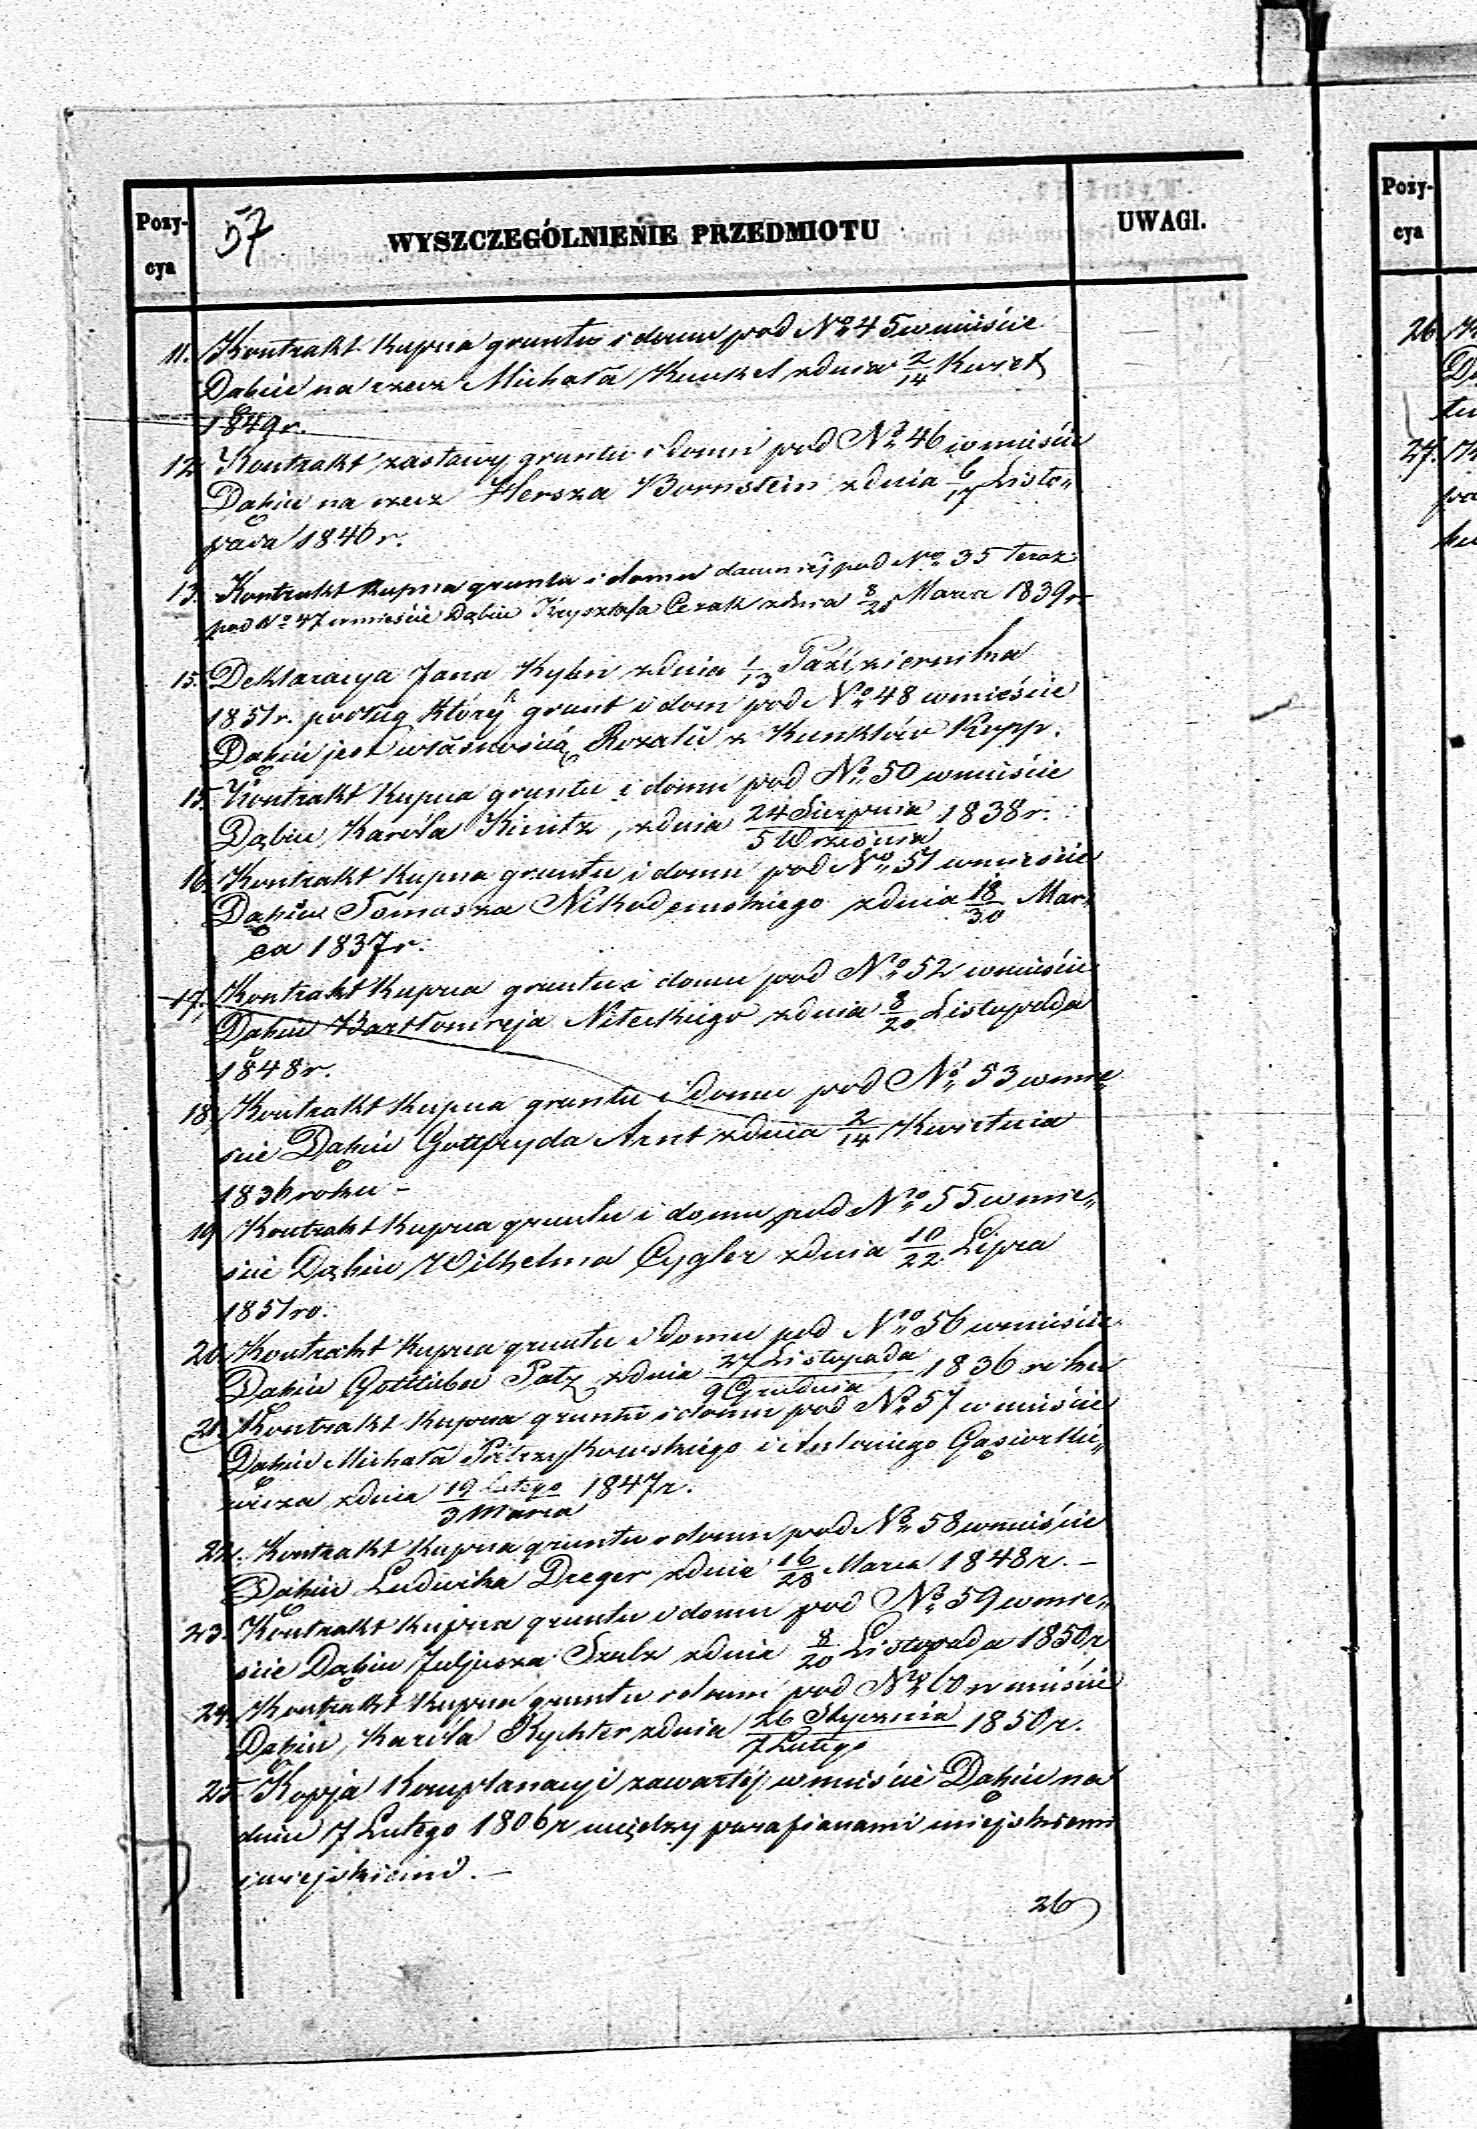 Pozy-
cya
57
WYSZCZEGÓLNIENIE PRZEDMIOTU
UWAGI.
11. Kontrakt Kupna gruntu i domu pod No 45 w mieście
Dąbiu na rzecz Michała Kunkel z dnia 2/14 Kwiet
1849 r.
12 Kontrakt zastawy gruntu i domu pod No 46 w mieście
Dąbiu na rzecz Hersza Bornstein z dnia 6/17 Listo„
pada 1846 r.
13. Kontrakt Kupna gruntu i domu dawniej pod No 35 teraz
pod No 47 w mieście Dąbiu Krysztofa Cezak z dnia 8/20 Marca 1839 r.
15. Deklaracya Jana Kyhn z dnia 1/13 Października
1851 r. podług Któréj grunt i dom pod No 48 w mieście
Dąbiu jest własnością Rozalii z Kunklów Kopp.
15. Kontrakt Kupna gruntu i domu pod No 50 w mieście
Dąbiu, Karóla Kinitz, z dnia 24 Sierpnia/5 Września 1838 r.
16 Kontrakt Kupna gruntu i domu pod No 51 w mieście
Dąbiu Tomasza Nikodemskiego z dnia 18/30 Mar„
ca 1837 r.
17, Kontrakt Kupna gruntu i domu pod No 52 w mieście
Dąbiu Bartłomieja Niteckiego z dnia 8/20 Listopada
1848 r.
18 Kontrakt Kupna gruntu i domu pod No 53 w mie„
ście Dąbiu Gottfryda Arnt z dnia 2/14 Kwietnia
1836 roku -
19 Kontrakt Kupna gruntu i domu pod No 55 w mie„
ście Dąbiu Wilhelma Cygler z dnia 10/22 Lipca
1851 ro.
20. Kontrakt Kupna gruntu i domu pod No 56 w mieście
Dąbiu Gottliba Patz z dnia 27 Listopada/9 Grudnia 1836 roku
21. Kontrakt Kupna gruntu i domu pod No 57 w mieście
Dąbiu Michała Pietrzykowskiego i Antoniego Gąsiorkie„
wicza z dnia 19 Lutego/3 Marca 1847 r.
22. Kontrakt Kupna gruntu i domu pod No 58 w mieście
Dąbiu Ludwika Dreger z dnia 16/28 Marca 1848 r. -
23. Kontrakt Kupna gruntu i domu pod No 59 w mie„
ście Dąbiu Juljusza Szulz z dnia 8/20 Listopada 1850 r
24. Kontrakt Kupna gruntu i domu pod No 60 w mieście
Dąbiu, Karóla Rychter z dnia 26 Stycznia/7 Lutego 1850 r.
25 Kopja Komplanacyi zawartéj w mieście Dąbiu na
dniu 17 Lutego 1806 r między parafianami miejskiemi
i wiejskiemi. -
26
Pozy-
cya
26
27.